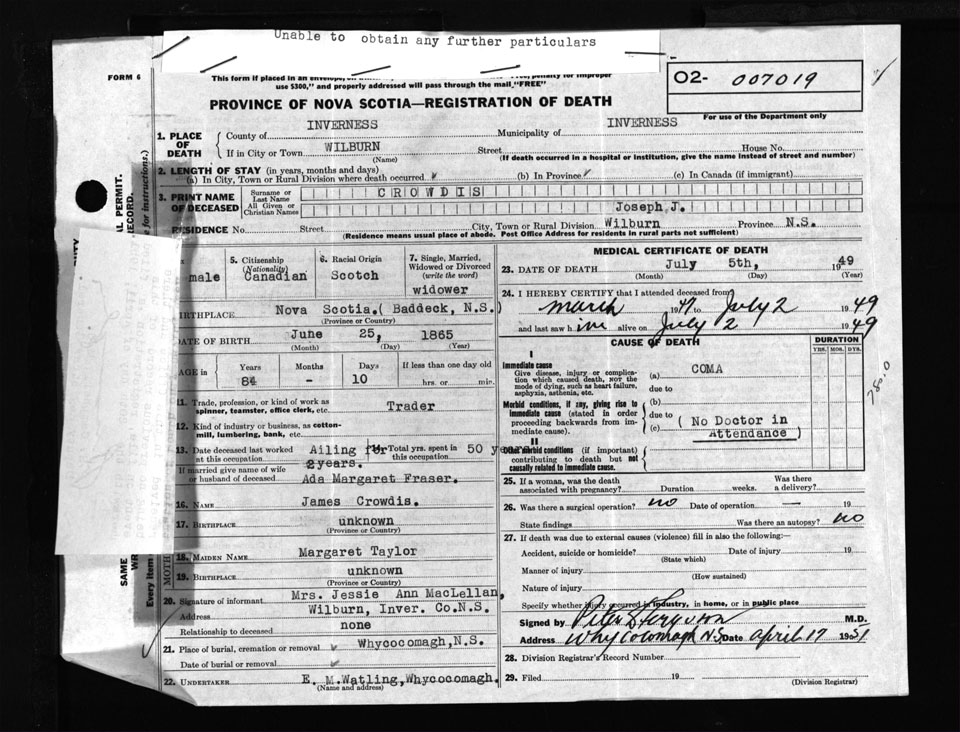 Unable to obtain any further particulars
FORM 6
This form if placed in an envelope,
penalty for improper
use $300," and properly addressed will pass through the mail "FREE"
O2- 007019
PROVINCE OF NOVA SCOTIA—REGISTRATION OF DEATH
For use of the Department only
1. PLACE OF DEATH
County of INVERNESS Municipality of INVERNESS
If in City or Town WILBURN Street House No.
(Name) (If death occurred in a hospital or institution, give the name instead of street and number)
2. LENGTH OF STAY (in years, months and days)
(a) In City, Town or Rural Division where death occurred (b) In Province (c) In Canada (if immigrant)
3. PRINT NAME OF DECEASED
Surname or Last Name CROWDIS
All Given or Christian Names Joseph J.
RESIDENCE No. Street City, Town or Rural Division Wilburn Province N.S.
(Residence means usual place of abode. Post Office Address for residents in rural parts not sufficient)
male
5. Citizenship (Nationality) Canadian
6. Racial Origin Scotch
7. Single, Married, Widowed or Divorced (write the word) widower
BIRTHPLACE Nova Scotia. (Baddeck, N.S.)
(Province or Country)
DATE OF BIRTH June 25, 1865
(Month) (Day) (Year)
AGE in Years 84 Months - Days 10 If less than one day old hrs. or min.
11. Trade, profession, or kind of work as spinner, teamster, office clerk, etc. Trader
12. Kind of industry or business, as cotton-mill, lumbering, bank, etc.
13. Date deceased last worked at this occupation Ailing for 2 years. Total yrs. spent in this occupation 50 years
If married give name of wife or husband of deceased Ada Margaret Fraser.
16. NAME James Crowdis.
17. BIRTHPLACE unknown
(Province or Country)
MOTH
18. MAIDEN NAME Margaret Taylor
19. BIRTHPLACE unknown
(Province or Country)
20. Signature of informant Mrs. Jessie Ann MacLellan,
Address Wilburn, Inver. Co.N.S.
Relationship to deceased none
21. Place of burial, cremation or removal Whycocomagh,N.S.
Date of burial or removal
22. UNDERTAKER E. M.Watling,Whycocomagh.
(Name and address)
MEDICAL CERTIFICATE OF DEATH
23. DATE OF DEATH July 5th, 1949
(Month) (Day) (Year)
24. I HEREBY CERTIFY that I attended deceased from
March 1947 to July 2 1949
and last saw him alive on July 2 1949
CAUSE OF DEATH
DURATION
YRS. MOS. DYS.
I
Immediate cause
Give disease, injury or complication which caused death, NOT the mode of dying, such as heart failure, asphyxia, asthenia, etc.
(a) COMA
due to
Morbid conditions, if any, giving rise to immediate cause (stated in order proceeding backwards from immediate cause).
(b)
due to
(c)
(No Doctor in Attendance)
II
Other morbid conditions (if important) contributing to death but not causally related to immediate cause.
780.0
25. If a woman, was the death associated with pregnancy? Duration weeks. Was there a delivery?
26. Was there a surgical operation? no Date of operation — 19
State findings Was there an autopsy? no
27. If death was due to external causes (violence) fill in also the following:—
Accident, suicide or homicide? Date of injury 19
(State which)
Manner of injury
(How sustained)
Nature of injury
Specify whether injury occurred in industry, in home, or in public place
Signed by Peter S Ferguson M.D.
Address Whycocomagh N.S. Date April 17 1951
28. Division Registrar's Record Number
29. Filed 19
(Division Registrar)
L PERMIT.
RECORD.
for instructions.)
SAME
Every Items